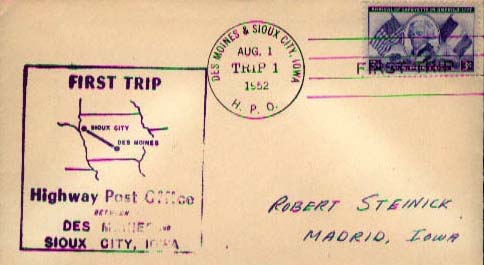 FIRST TRIP
SIOUX CITY
DES MOINES
Highway Post Office
BETWEEN
DES MOINES AND
SIOUX CITY, IOWA
DES MOINES & SIOUX CITY, IOWA
AUG. 1
TRIP 1
1952
H. P. O.
ARRIVAL OF LAFAYETTE IN AMERICA 1777
FIRST TRIP
3¢
ROBERT STEINICK
MADRID, IOWA